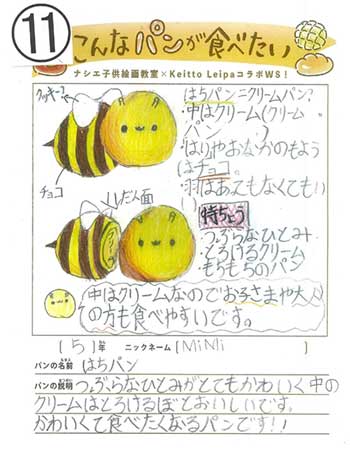 11
こんなパンが食べたい
ナシエ子供絵画教室×Keitto LeipaコラボWS!
クッキー?
はちパン=クリームパン?
・中はクリーム(クリーム
パン)
・はりやおなかのもよう
はチョコ。
・羽はあえてもなくてもい
い
チョコ
しだん面
クリーム
特ちょう
・つぶらなひとみ
・とろけるクリーム
・もちもちのパン
中はクリームなのでお子さまや大人
の方も食べやすいです。
(5)年 ニックネーム(MiNi)
パンの名前 はちパン
パンの説明 つぶらなひとみがとてもかわいく中の
クリームはとろけるほどおいしいです。
かわいくて食べたくなるパンです!!